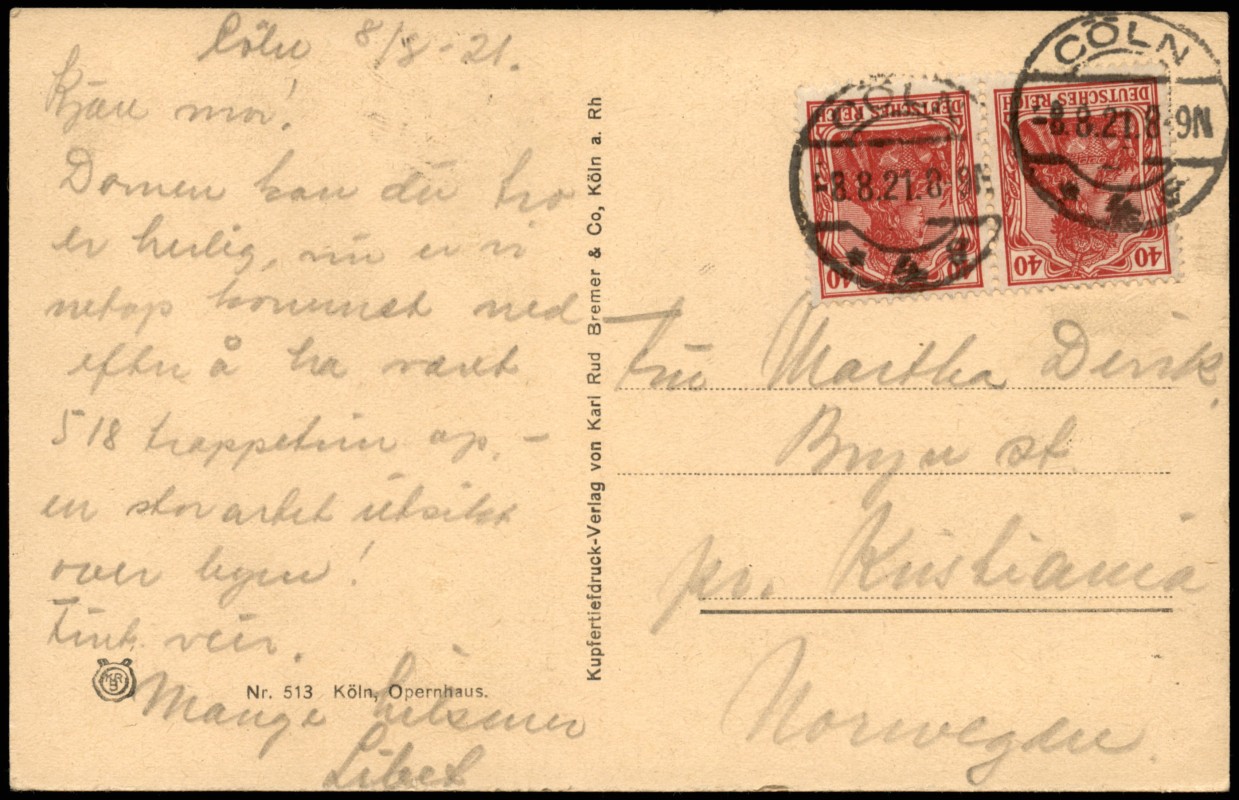 Cöln 8/8-21.
Kjære mor!
Domen kan du tro
er heilig, nu er vi
netop kommet ned
efter å ha været
518 trappetrin op, –
en storartet utsikt
over byen!
Fint veir.
Mange hilsener
Libet
KRB
Nr. 513 Köln, Opernhaus.
Kupfertiefdruck-Verlag von Karl Rud Bremer & Co, Köln a. Rh
CÖLN
-8.8.21.8-9N
* 4 a
DEUTSCHES REICH
40 40
CÖLN
-8.8.21.8-9N
* 4 a
DEUTSCHES REICH
40 40
Fru Martha
Bryn st.
pr. Kristiania
Norwegen.